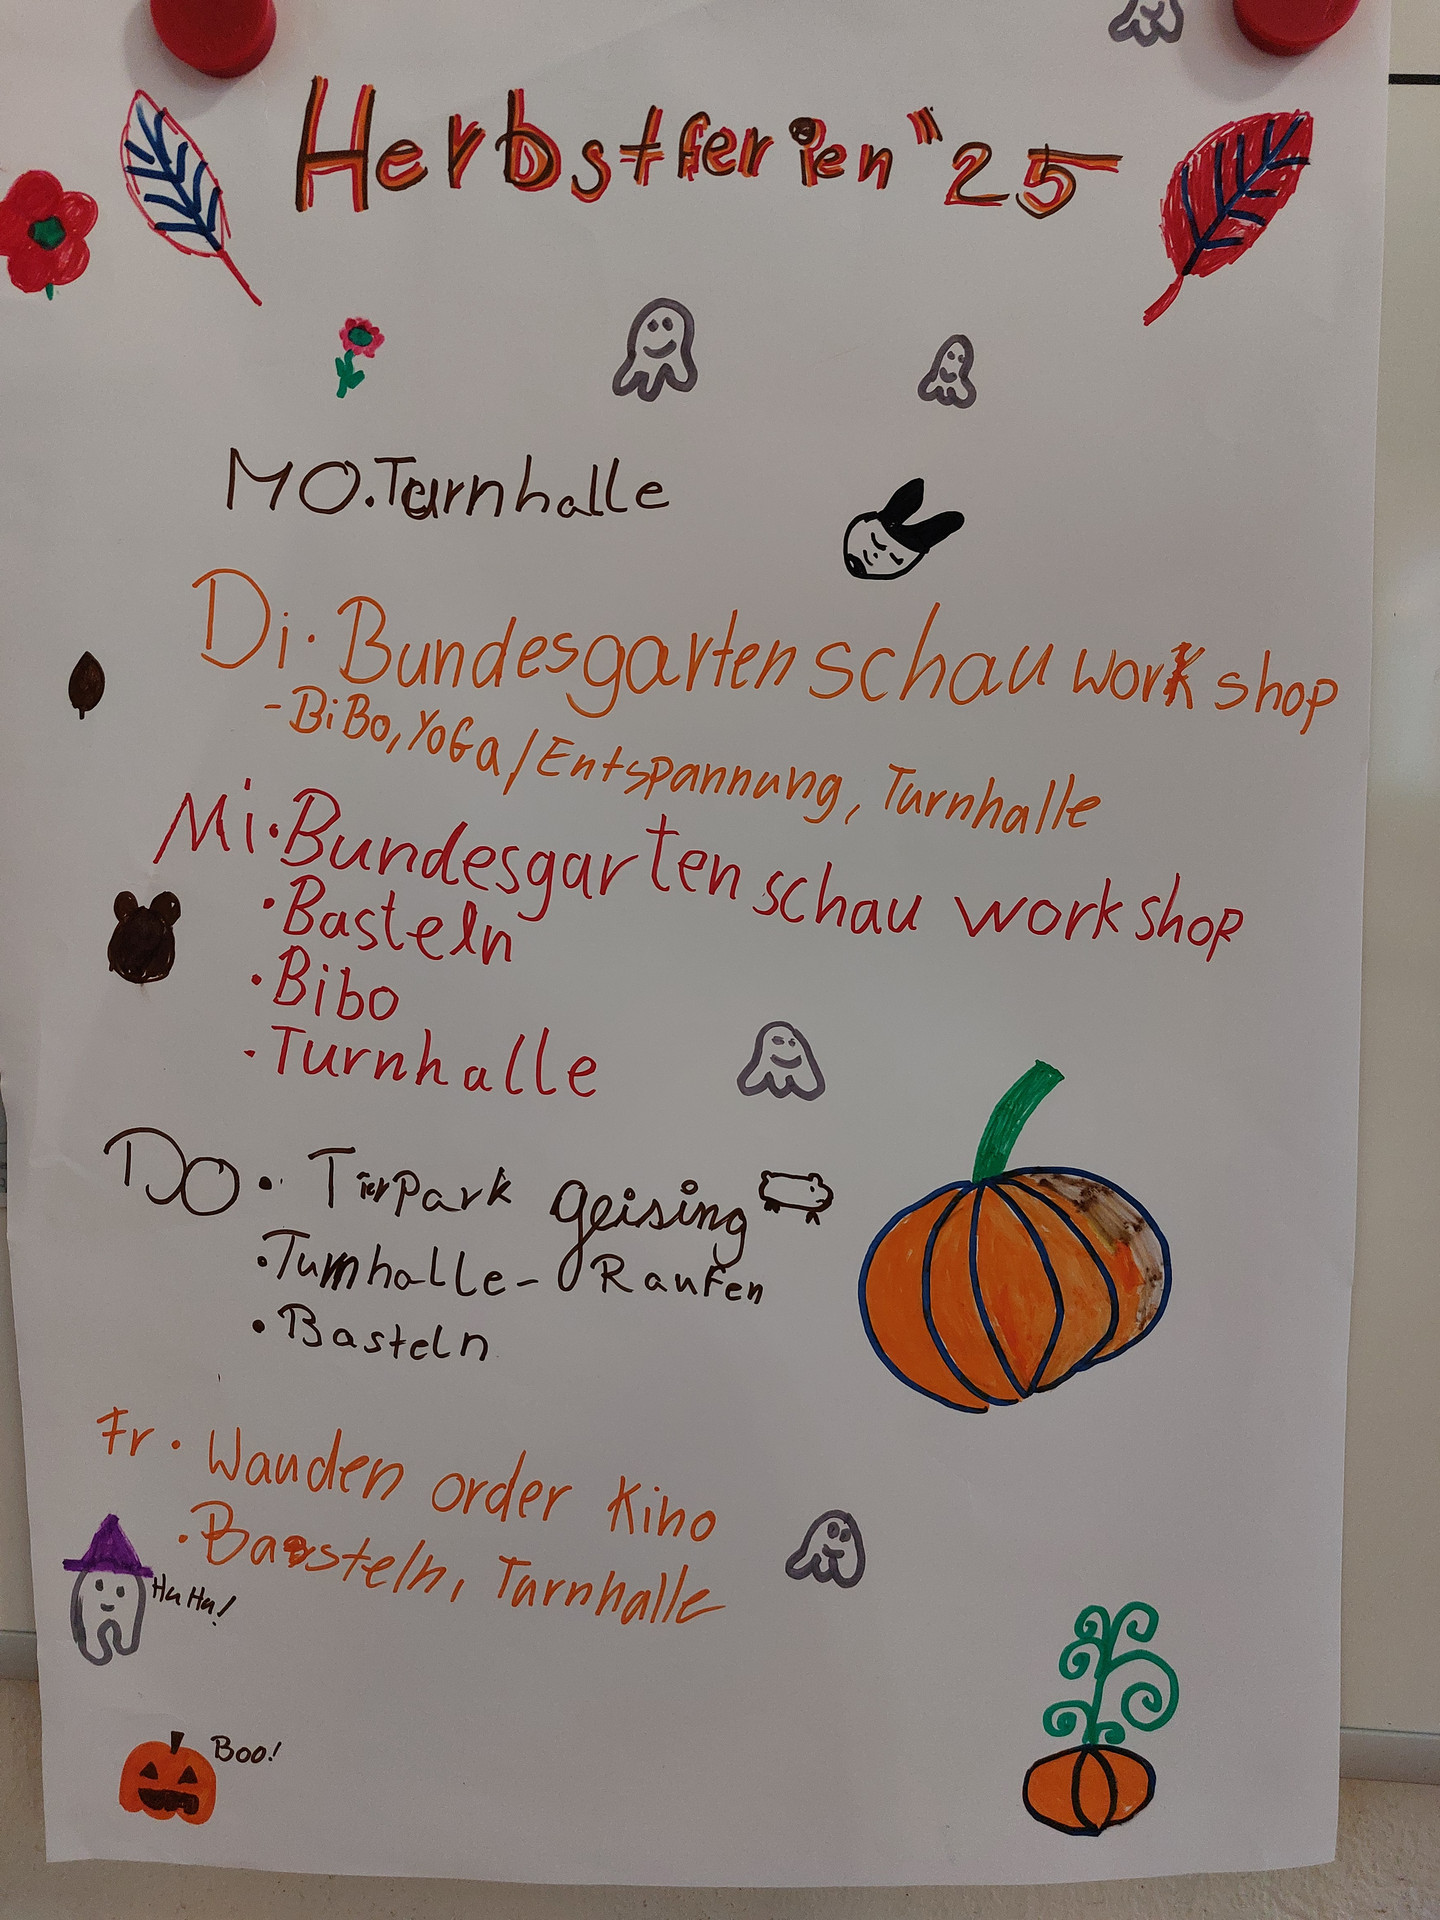 Herbstferien "25
MO. Turnhalle
Di. Bundesgartenschau workshop
- BiBo, YoGa / Entspannung, Turnhalle
Mi. Bundesgartenschau workshop
· Basteln
· Bibo
- Turnhalle
DO. Tierpark geising
· Turnhalle - Raufen
· Basteln
Fr. Wanden order Kino
· Basteln, Turnhalle
Ha Ha!
Boo!